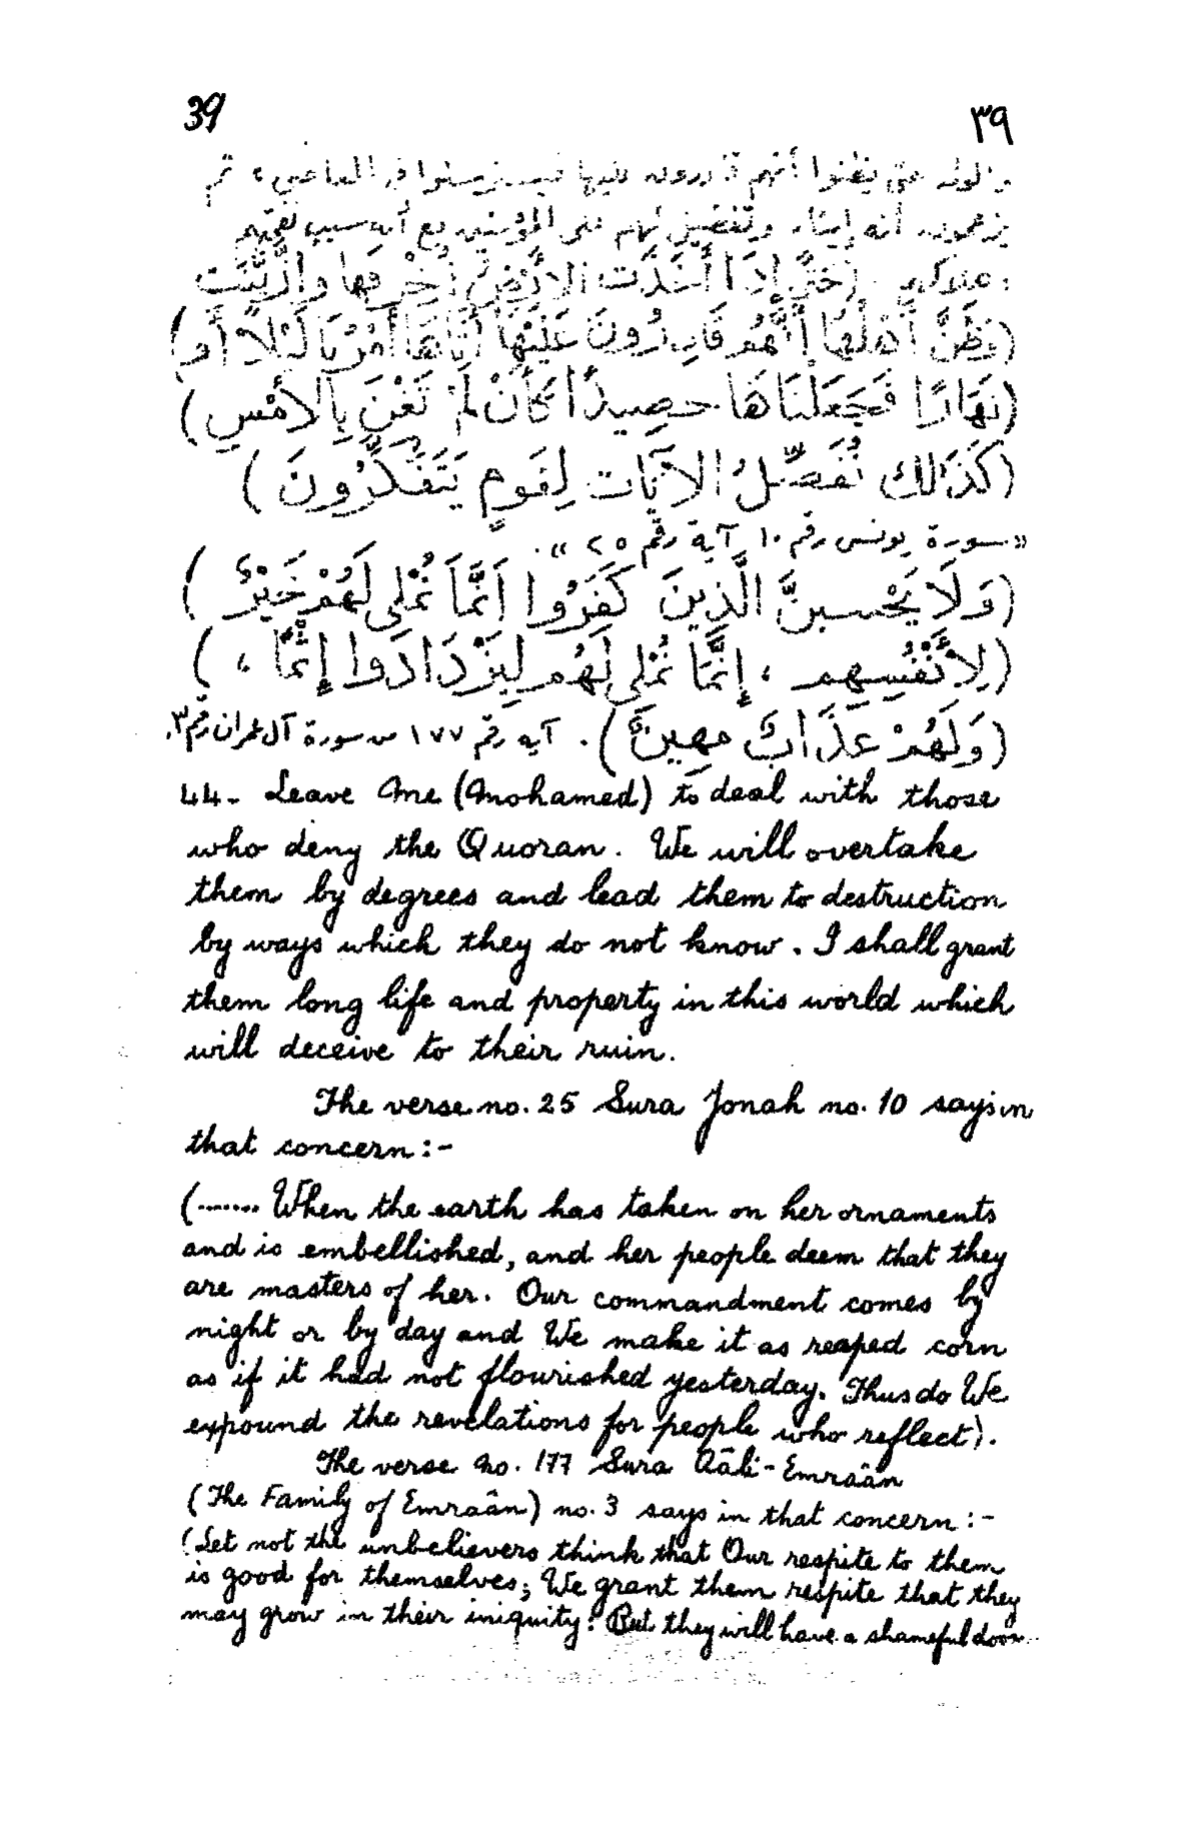 39 ٣٩
أنهم عليها المعاصي ، ثم
أنه وتفضيل لهم على المؤمنين مع أنه سبب
(حَتَّى إِذَا أَخَذَت الأَرْضُ زُخْرُفَهَا وَازَّيَّنَت
(وَظَنَّ أَهْلُهَا أَنَّهُم قَادِرُونَ عَلَيْهَا أَتَاهَا أَمْرُنَا لَيْلاً أَو)
(نَهَارًا فَجَعَلْنَاهَا حَصِيدًا كَأَنْ لَمْ تَغْنَ بِالأَمْسِ)
(كَذَلِكَ نُفَصِّلُ الآيَات لِقَومٍ يَتَفَكَّرُونَ)
«سورة يونس رقم ١٠ آية رقم ٢٥».
(وَلَا يَحْسبنَّ الَّذِينَ كَفَرُوا اَنَّمَا نُمْلِى لَهُمْ خَيْرٌ)
(لِأَنْفُسِهِم ، إِنَّمَا نُمْلِى لَهُم لِيَزْدَادَوا إِثْمًا ،)
(وَلَهُمْ عَذَابٌ مهِينٌ). آيه رقم ١٧٧ من سورة آل عمران رقم ٣.
44- Leave Me (Mohamed) to deal with those
who deny the Quoran. We will overtake
them by degrees and lead them to destruction
by ways which they do not know. I shall grant
them long life and property in this world which
will deceive to their ruin.
The verse no. 25 Sura Jonah no. 10 says in
that concern:-
(....... When the earth has taken on her ornaments
and is embellished, and her people deem that they
are masters of her. Our commandment comes by
night or by day and We make it as reaped corn
as if it had not flourished yesterday. Thus do We
expound the revelations for people who reflect).
The verse no. 177 Sura Aāli-Emraân
(The Family of Emraân) no. 3 says in that concern:-
(Let not the unbelievers think that Our respite to them
is good for themselves; We grant them respite that they
may grow in their iniquity: But they will have a shameful doom